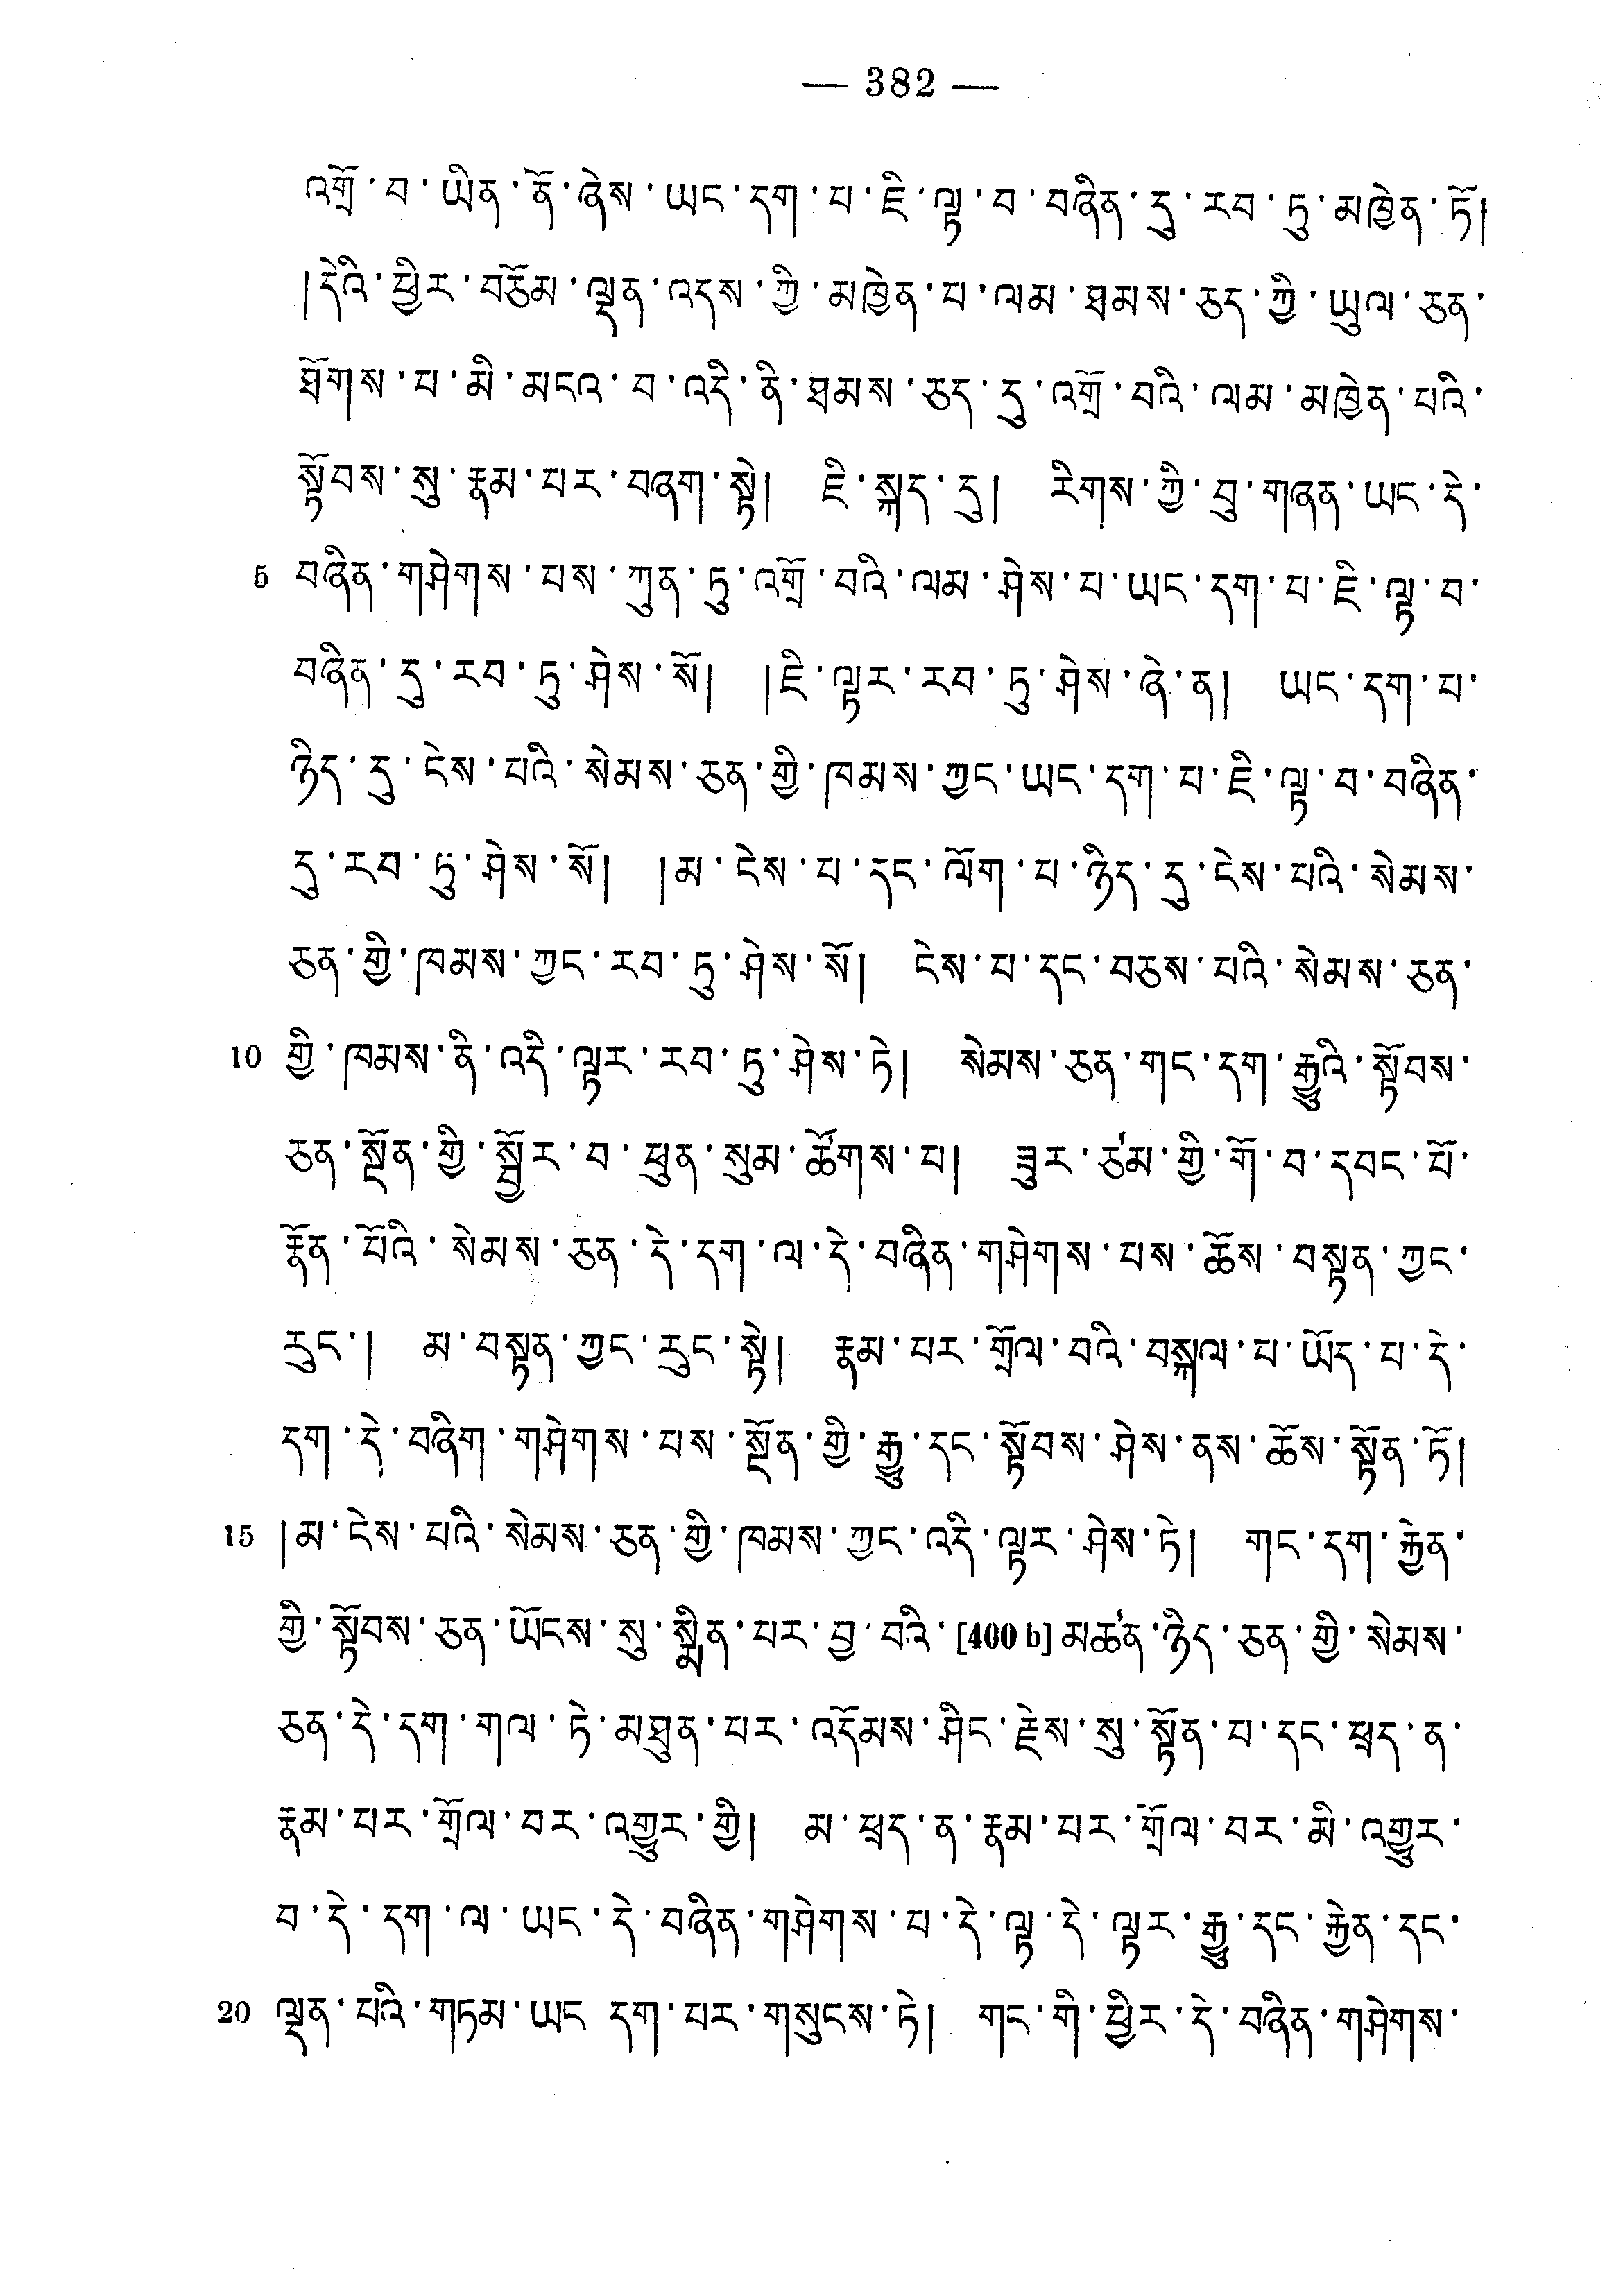 — 382 —
འགྲོ་བ་ཡིན་ནོ་ཞེས་ཡང་དག་པ་ཇི་ལྟ་བ་བཞིན་དུ་རབ་ཏུ་མཁྱེན་ཏོ།
།དེའི་ཕྱིར་བཅོམ་ལྡན་འདས་ཀྱི་མཁྱེན་པ་ལམ་ཐམས་ཅད་ཀྱི་ཡུལ་ཅན་
ཐོགས་པ་མི་མངའ་བ་འདི་ནི་ཐམས་ཅད་དུ་འགྲོ་བའི་ལམ་མཁྱེན་པའི་
སྟོབས་སུ་རྣམ་པར་བཞག་སྟེ། ཇི་སྐད་དུ། རིགས་ཀྱི་བུ་གཞན་ཡང་དེ་
5 བཞིན་གཤེགས་པས་ཀུན་ཏུ་འགྲོ་བའི་ལམ་ཤེས་པ་ཡང་དག་པ་ཇི་ལྟ་བ་
བཞིན་དུ་རབ་ཏུ་ཤེས་སོ། །ཇི་ལྟར་རབ་ཏུ་ཤེས་ཞེ་ན། ཡང་དག་པ་
ཉིད་དུ་ངེས་པའི་སེམས་ཅན་གྱི་ཁམས་ཀྱང་ཡང་དག་པ་ཇི་ལྟ་བ་བཞིན་
དུ་རབ་ཏུ་ཤེས་སོ། །མ་ངེས་པ་དང་ལོག་པ་ཉིད་དུ་ངེས་པའི་སེམས་
ཅན་གྱི་ཁམས་ཀྱང་རབ་ཏུ་ཤེས་སོ། ངེས་པ་དང་བཅས་པའི་སེམས་ཅན་
10 གྱི་ཁམས་ནི་འདི་ལྟར་རབ་ཏུ་ཤེས་ཏེ། སེམས་ཅན་གང་དག་རྒྱུའི་སྟོབས་
ཅན་སྔོན་གྱི་སྦྱོར་བ་ཕུན་སུམ་ཚོགས་པ། ཟུར་ཙམ་གྱི་གོ་བ་དབང་པོ་
རྣོན་པོའི་སེམས་ཅན་དེ་དག་ལ་དེ་བཞིན་གཤེགས་པས་ཆོས་བསྟན་ཀྱང་
རུང་། མ་བསྟན་ཀྱང་རུང་སྟེ། རྣམ་པར་གྲོལ་བའི་བསྐལ་པ་ཡོད་པ་དེ་
དག་དེ་བཞིག་གཤེགས་པས་སྔོན་གྱི་རྒྱུ་དང་སྟོབས་ཤེས་ནས་ཆོས་སྟོན་ཏོ།
15 །མ་ངེས་པའི་སེམས་ཅན་གྱི་ཁམས་ཀྱང་འདི་ལྟར་ཤེས་ཏེ། གང་དག་རྐྱེན་
གྱི་སྟོབས་ཅན་ཡོངས་སུ་སྨིན་པར་བྱ་བའི་[400 b]མཚན་ཉིད་ཅན་གྱི་སེམས་
ཅན་དེ་དག་གལ་ཏེ་མཐུན་པར་འདོམས་ཤིང་རྗེས་སུ་སྟོན་པ་དང་ཕྲད་ན་
རྣམ་པར་གྲོལ་བར་འགྱུར་གྱི། མ་ཕྲད་ན་རྣམ་པར་གྲོལ་བར་མི་འགྱུར་
བ་དེ་དག་ལ་ཡང་དེ་བཞིན་གཤེགས་པ་དེ་ལྟ་དེ་ལྟར་རྒྱུ་དང་རྐྱེན་དང་
20 ལྡན་པའི་གཏམ་ཡང དག་པར་གསུངས་ཏེ། གང་གི་ཕྱིར་དེ་བཞིན་གཤེགས་